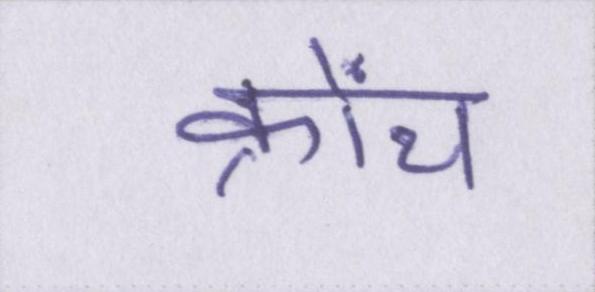 क्रोंच